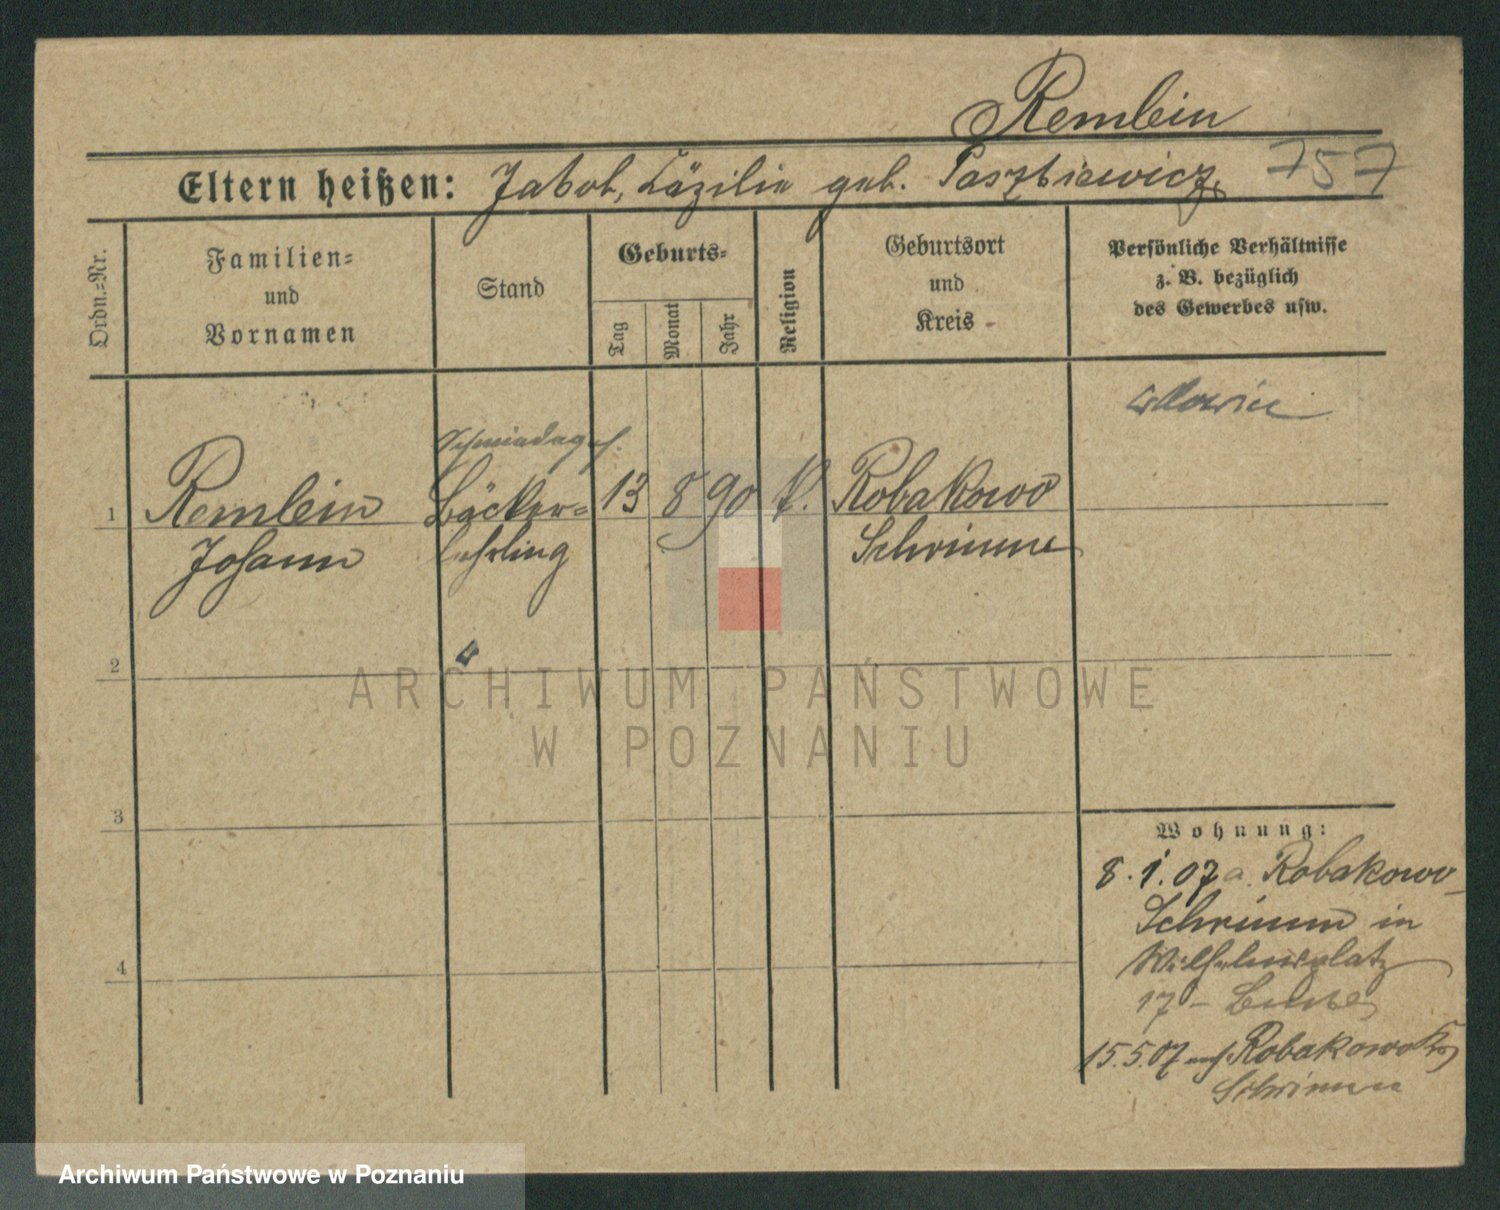 Remlein
Eltern heißen: Jakob, Cäzilie geb. Paszkiewicz 757
Ordn.=Nr.
Familien=
und
Vornamen
Stand
Geburts=
Tag
Monat
Jahr
Religion
Geburtsort
und
Kreis
Persönliche Verhältnisse
z. B. bezüglich
des Gewerbes usw.
1 Remlein Bäcker= 13 8 90 k. Robakowo
Johann lehrling Schrimm
2
3
4
Wohnung:
8.1.07 a. Robakowo
Schrimm in
Wilhelmsplatz
17 -
15.5.07 nach Robakowo Krs
Schrimm
ARCHIWUM PAŃSTWOWE
W POZNANIU
Archiwum Państwowe w Poznaniu